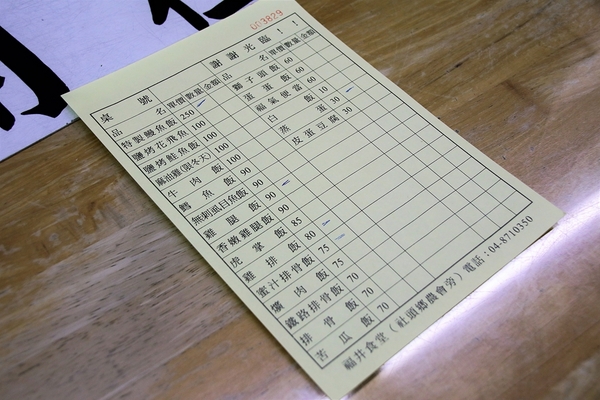 003829
謝謝光臨！！
桌號
品名 單價 數量 金額 品名 單價 數量 金額
特製鰻魚飯 250 獅子頭飯 60
鹽烤花飛魚 100 蛋蛋飯 60
鹽烤鮭魚飯 100 福氣便當 60
麻油雞(限冬天) 100 白飯 10
牛肉飯 100 蒸蛋 30
鱈魚飯 90 皮蛋豆腐 30
無刺虱目魚飯 90
雞腿飯 90
香嫩雞腿飯 90
虎掌飯 85
雞排飯 80
蜜汁排骨飯 75
爌肉飯 75
鐵路排骨飯 70
排骨飯 70
苦瓜飯 70
福井食堂（社頭鄉農會旁）電話：04-8710350